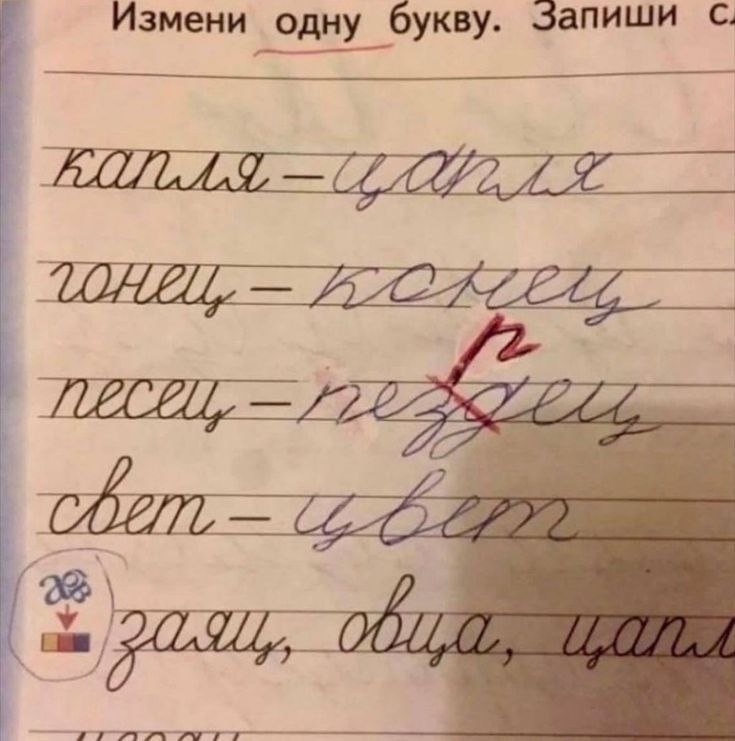 Измени одну букву. Запиши
капля – цапля
гонец – конец
р
песец – пездец
свет – цвет
заяц, овца, цапл